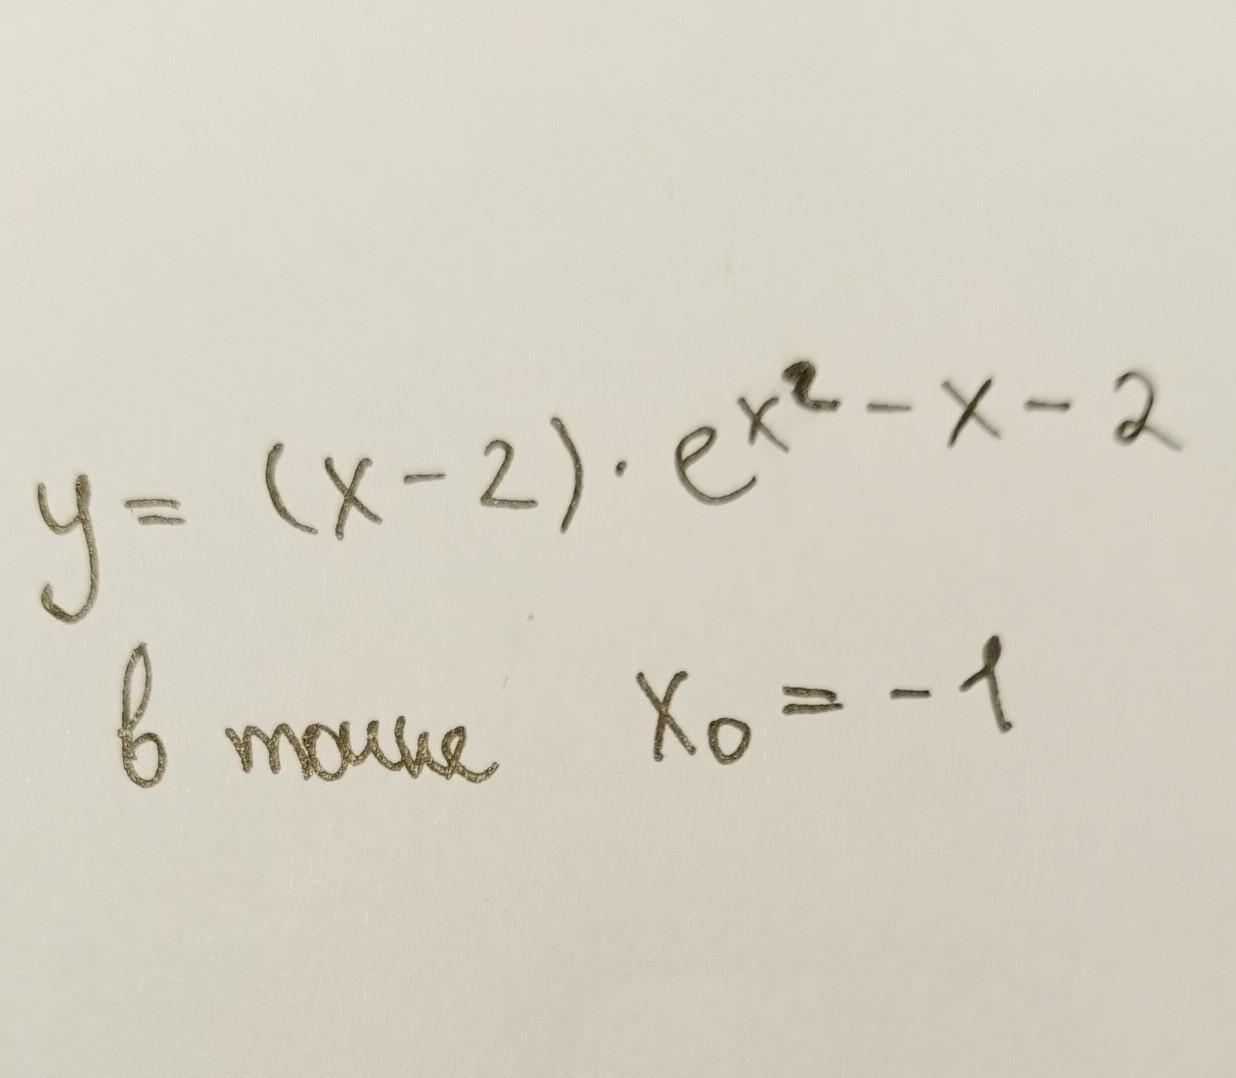 y = (x - 2) · e^{x² - x - 2}
в точке x₀ = -1